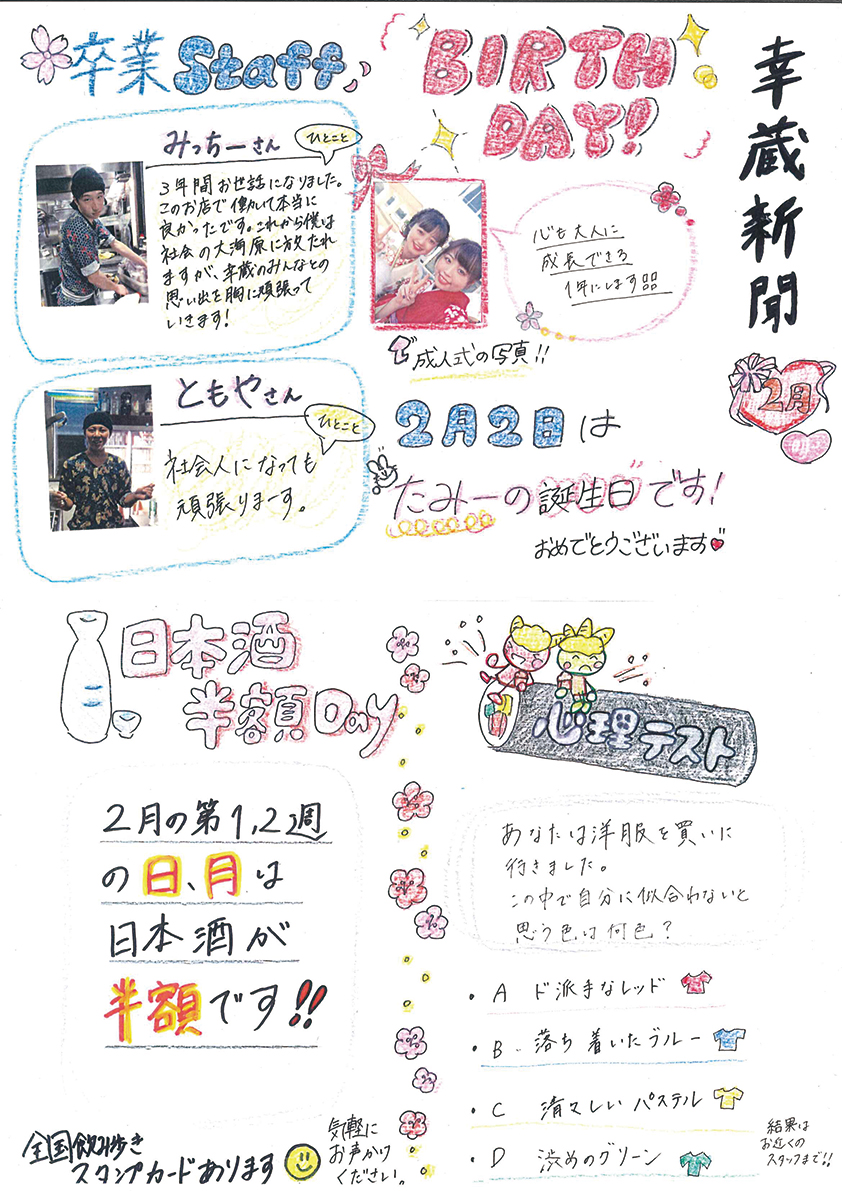 幸蔵新聞
2月
卒業Staff
みっちーさん
ひとこと
3年間お世話になりました。
このお店で働けて本当に
良かったです。これから僕は
社会の大海原に放たれ
ますが、幸蔵のみんなとの
思い出を胸に頑張って
いきます！
ともやさん
ひとこと
社会人になっても
頑張りまーす。
BIRTH
DAY!
心も大人に
成長できる
1年にします
成人式の写真!!
2月2日は
たみーの誕生日です！
おめでとうございます
日本酒
半額Day
2月の第1,2週
の日、月は
日本酒が
半額です!!
全国飲み歩き
スタンプカードあります
気軽に
お声かけ
ください。
心理テスト
あなたは洋服を買いに
行きました。
この中で自分に似合わないと
思う色は何色？
・A ド派手なレッド
・B 落ち着いたブルー
・C 清々しいパステル
・D 渋めのグリーン
結果は
お近くの
スタッフまで!!